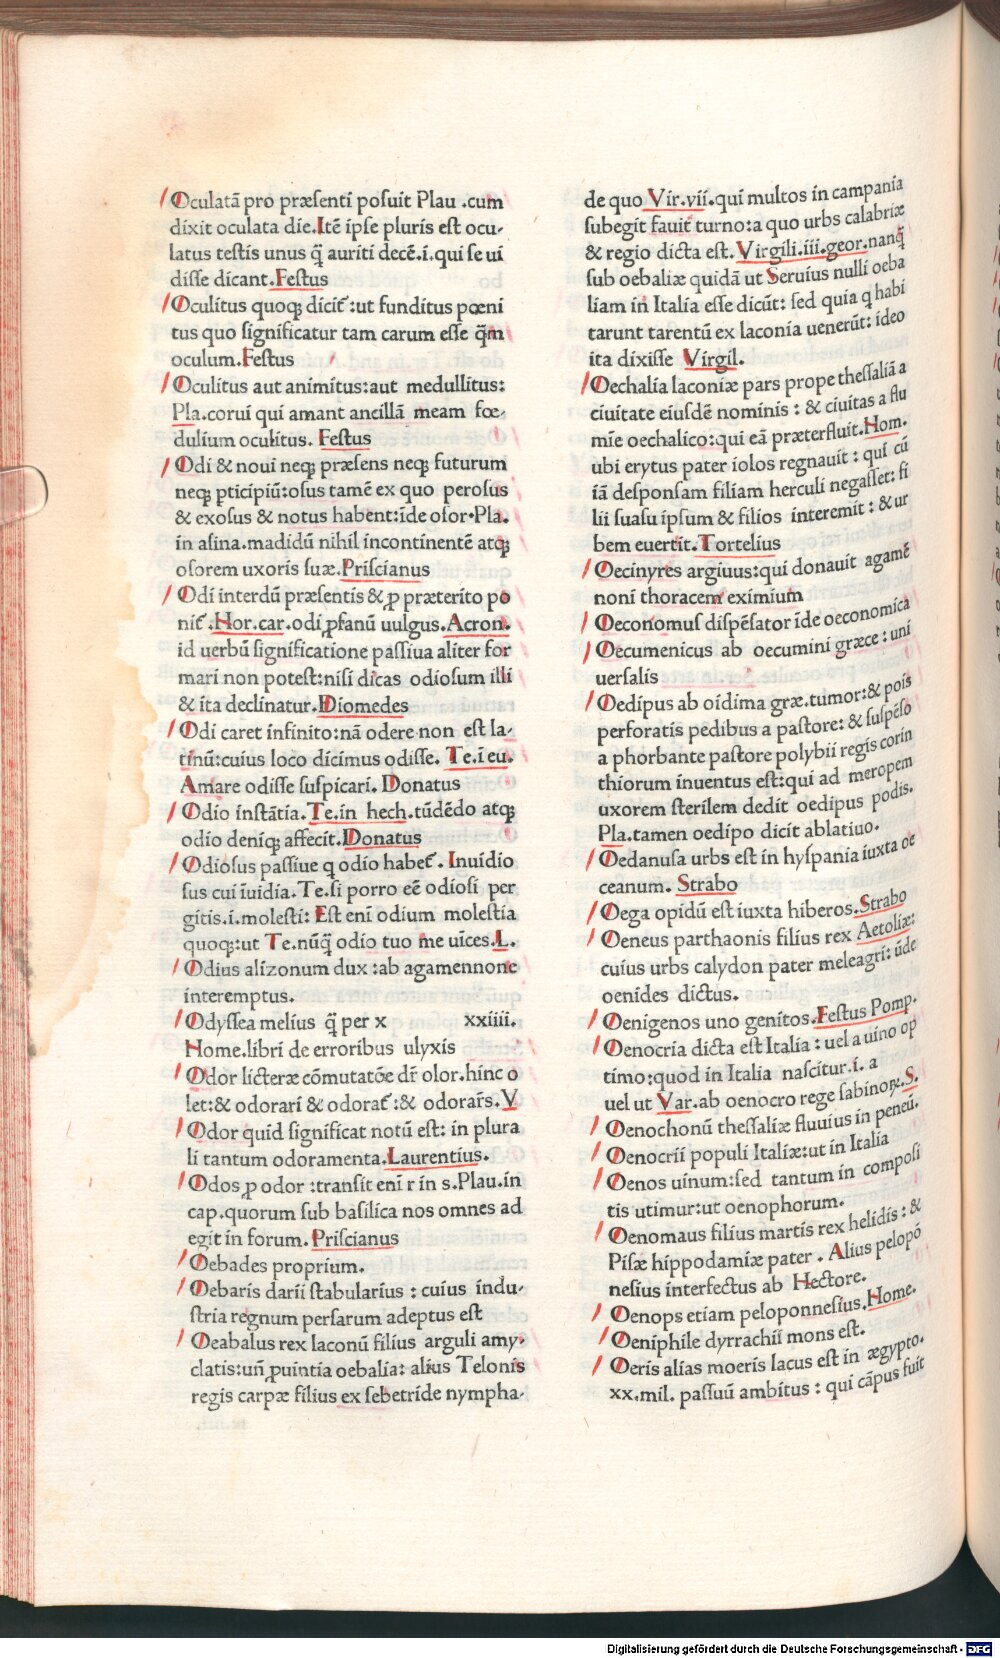 Oculatā pro præsenti posuit Plau .cum
dixit oculata die.Itē ipse pluris est ocu-
latus testis unus q̄ auriti decē.i.qui se ui
disse dicant.Festus
Oculitus quoq; dicit᷑ :ut funditus pœni
tus quo significatur tam carum esse q̄m
oculum.Festus
Oculitus aut animitus:aut medullitus:
Pla.corui qui amant ancillā meam fœ-
dulium oculitus. Festus
Odi & noui neq; præsens neq; futurum
neq; ꝑticipiū:osus tamē ex quo perosus
& exosus & notus habent:īde osor.Pla.
in asina.madidū nihil incontinentē atq;
osorem uxoris suæ.Priscianus
Odi interdū præsentis & ꝓ præterito po
nit᷑ .Hor.car.odi ꝓfanū uulgus.Acron.
id uerbū significatione passiua aliter for
mari non potest:nisi dicas odiosum illi
& ita declinatur.Diomedes
Odi caret infinito:nā odere non est la-
tinū:cuius loco dicimus odisse. Te.ī eu.
Amare odisse suspicari. Donatus
Odio instātia. Te.in hech.tūdēdo atq;
odio deniq; affecit.Donatus
Odiosus passiue q odio habet᷑ . Inuidio
sus cui īuidia. Te.si porro eē odiosi per
gitis.i.molesti: Est eni odium molestia
quoq;:ut Te.nūq̄ odio tuo me uīces.L.
Odius alizonum dux :ab agamennone
interemptus.
Odyssea melius q̄ per x xxiiii.
Home.libri de erroribus ulyxis
Odor licteræ cōmutatōe dr̄ olor.hinc o
let:& odorari & odorat᷑ :& odorar̄s.V
Odor quid significat notū est: in plura
li tantum odoramenta.Laurentius.
Odos ꝓ odor :transit eni r in s.Plau.in
cap.quorum sub basilica nos omnes ad
egit in forum. Priscianus
Oebades proprium.
Oebaris darii stabularius : cuius indu-
stria regnum persarum adeptus est
Oeabalus rex laconū filius arguli amy-
clatis:un̄ ꝓuintia oebalia: alius Telonis
regis carpæ filius ex sebetride nympha-
de quo Vir.vii.qui multos in campania
subegit fauit᷑ turno:a quo urbs calabriæ
& regio dicta est. Virgili.iii.geor.nanq̄
sub oebaliæ quidā ut Seruius nulli oeba
liam in Italia esse dicūt: sed quia q habi
tarunt tarentū ex laconia uenerūt: ideo
ita dixisse Virgil.
Oechalia laconiæ pars prope thessaliā a
ciuitate eiusdē nominis : & ciuitas a flu
mīe oechalico:qui eā præterfluit.Hom.
ubi erytus pater iolos regnauit : qui cū
iā desponsam filiam herculi negasset: fi
lii suasu ipsum & filios interemit : & ur
bem euertit.Tortelius
Oecinyres argiuus:qui donauit agamē
noni thoracem eximium
Oeconomus dispēsator īde oeconomica
Oecumenicus ab oecumini græce : uni
uersalis
Oedipus ab oidima græ.tumor:& pois
perforatis pedibus a pastore: & suspēso
a phorbante pastore polybii regis corin
thiorum inuentus est:qui ad meropem
uxorem sterilem dedit oedipus podis.
Pla.tamen oedipo dicit ablatiuo.
Oedanusa urbs est in hyspania iuxta oc
ceanum. Strabo
Oega opidū est iuxta hiberos.Strabo
Oeneus parthaonis filius rex Aetoliæ:
cuius urbs calydon pater meleagri: ūde
oenides dictus.
Oenigenos uno genitos.Festus Pomp.
Oenocria dicta est Italia : uel a uino op
timo:quod in Italia nascitur.i. a
uel ut Var.ab oenocro rege sabinoꝝ.S.
Oenochonū thessaliæ fluuius in peneū.
Oenocrii populi Italiæ:ut in Italia
Oenos uinum:sed tantum in composi
tis utimur:ut oenophorum.
Oenomaus filius martis rex helidis : &
Pisæ hippodamiæ pater . Alius pelopō
nesius interfectus ab Hectore.
Oenops etiam peloponnesius.Home.
Oeniphile dyrrachii mons est.
Oeris alias moeris lacus est in ægypto.
xx.mil. passuū ambitus : qui cāpus fuit
Digitalisierung gefördert durch die Deutsche Forschungsgemeinschaft - DFG